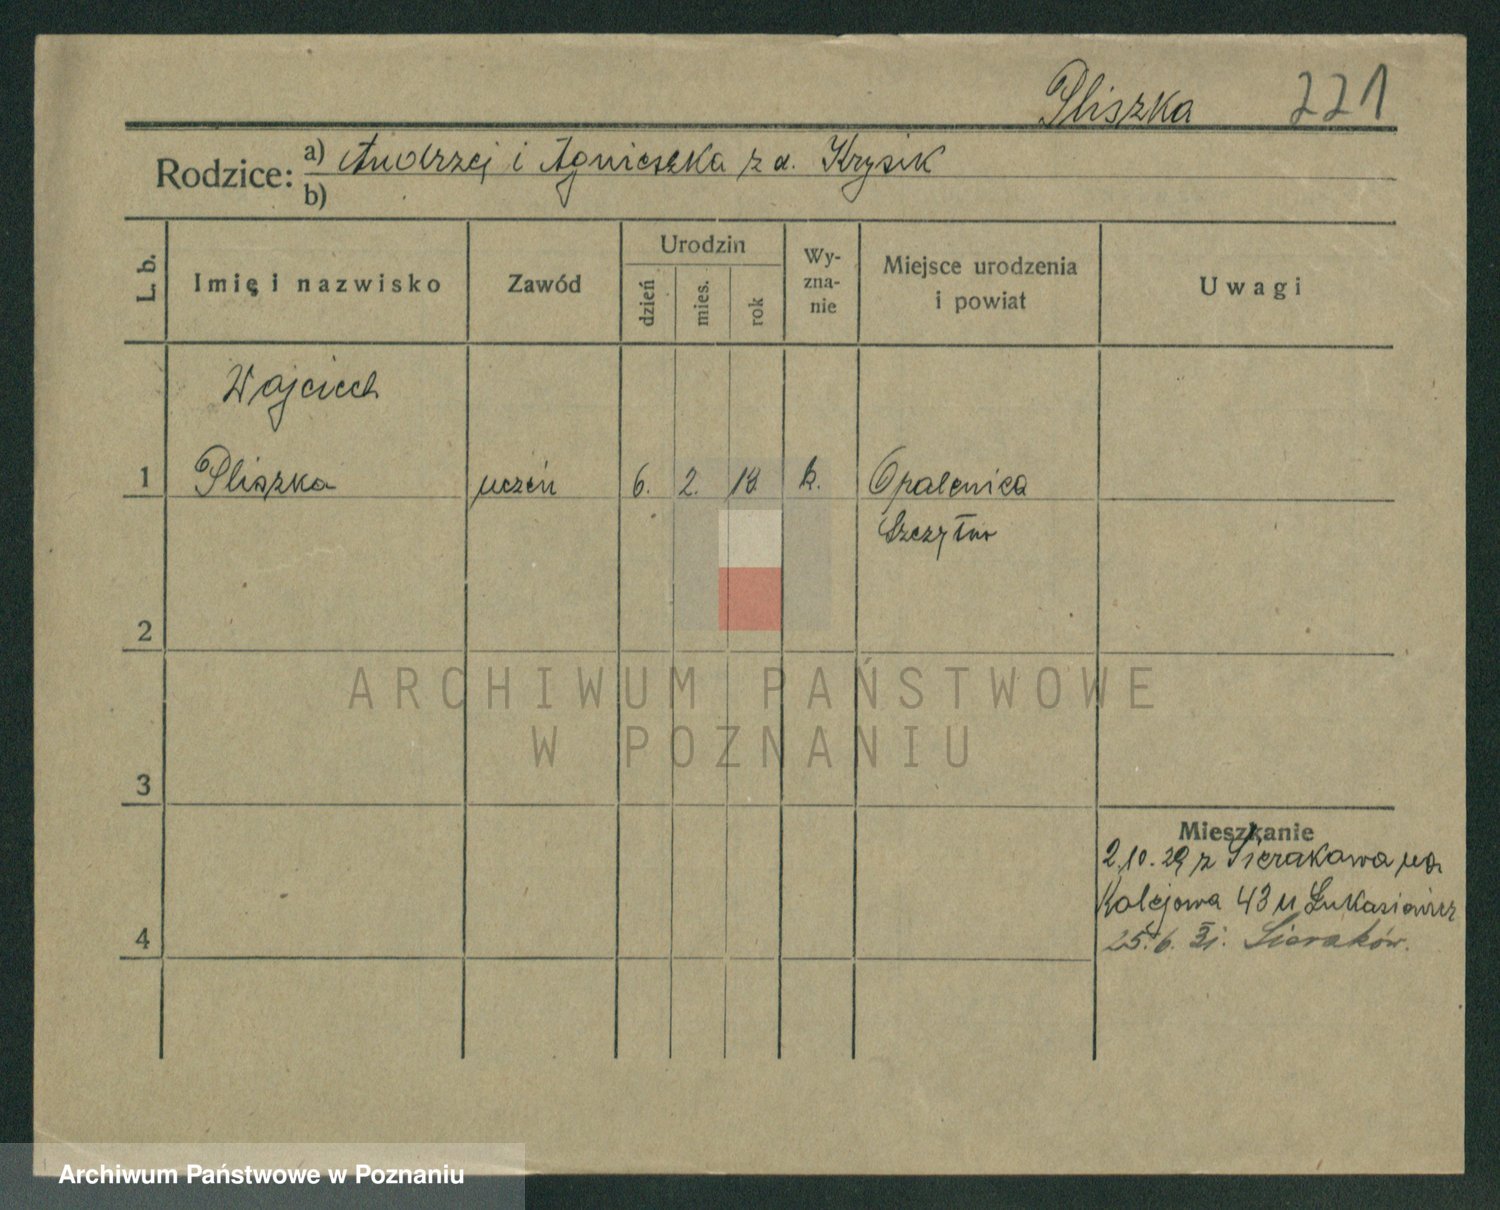 Pliszka 221
Rodzice: a) Andrzej i Agnieszka z d. Krysik
b)
L. b. Imię i nazwisko Zawód Urodzin dzień mies. rok Wy-zna-nie Miejsce urodzenia i powiat Uwagi
Wojciech
1 Pliszka uczeń 6. 2. 18 k. Opalenica
2
ARCHIWUM PAŃSTWOWE
W POZNANIU
3
Mieszkanie
2.10.29 z Sierakowa na
Kolejowa 43 u Łukasiewicz
4 25.6. 31. Sieraków.
Archiwum Państwowe w Poznaniu